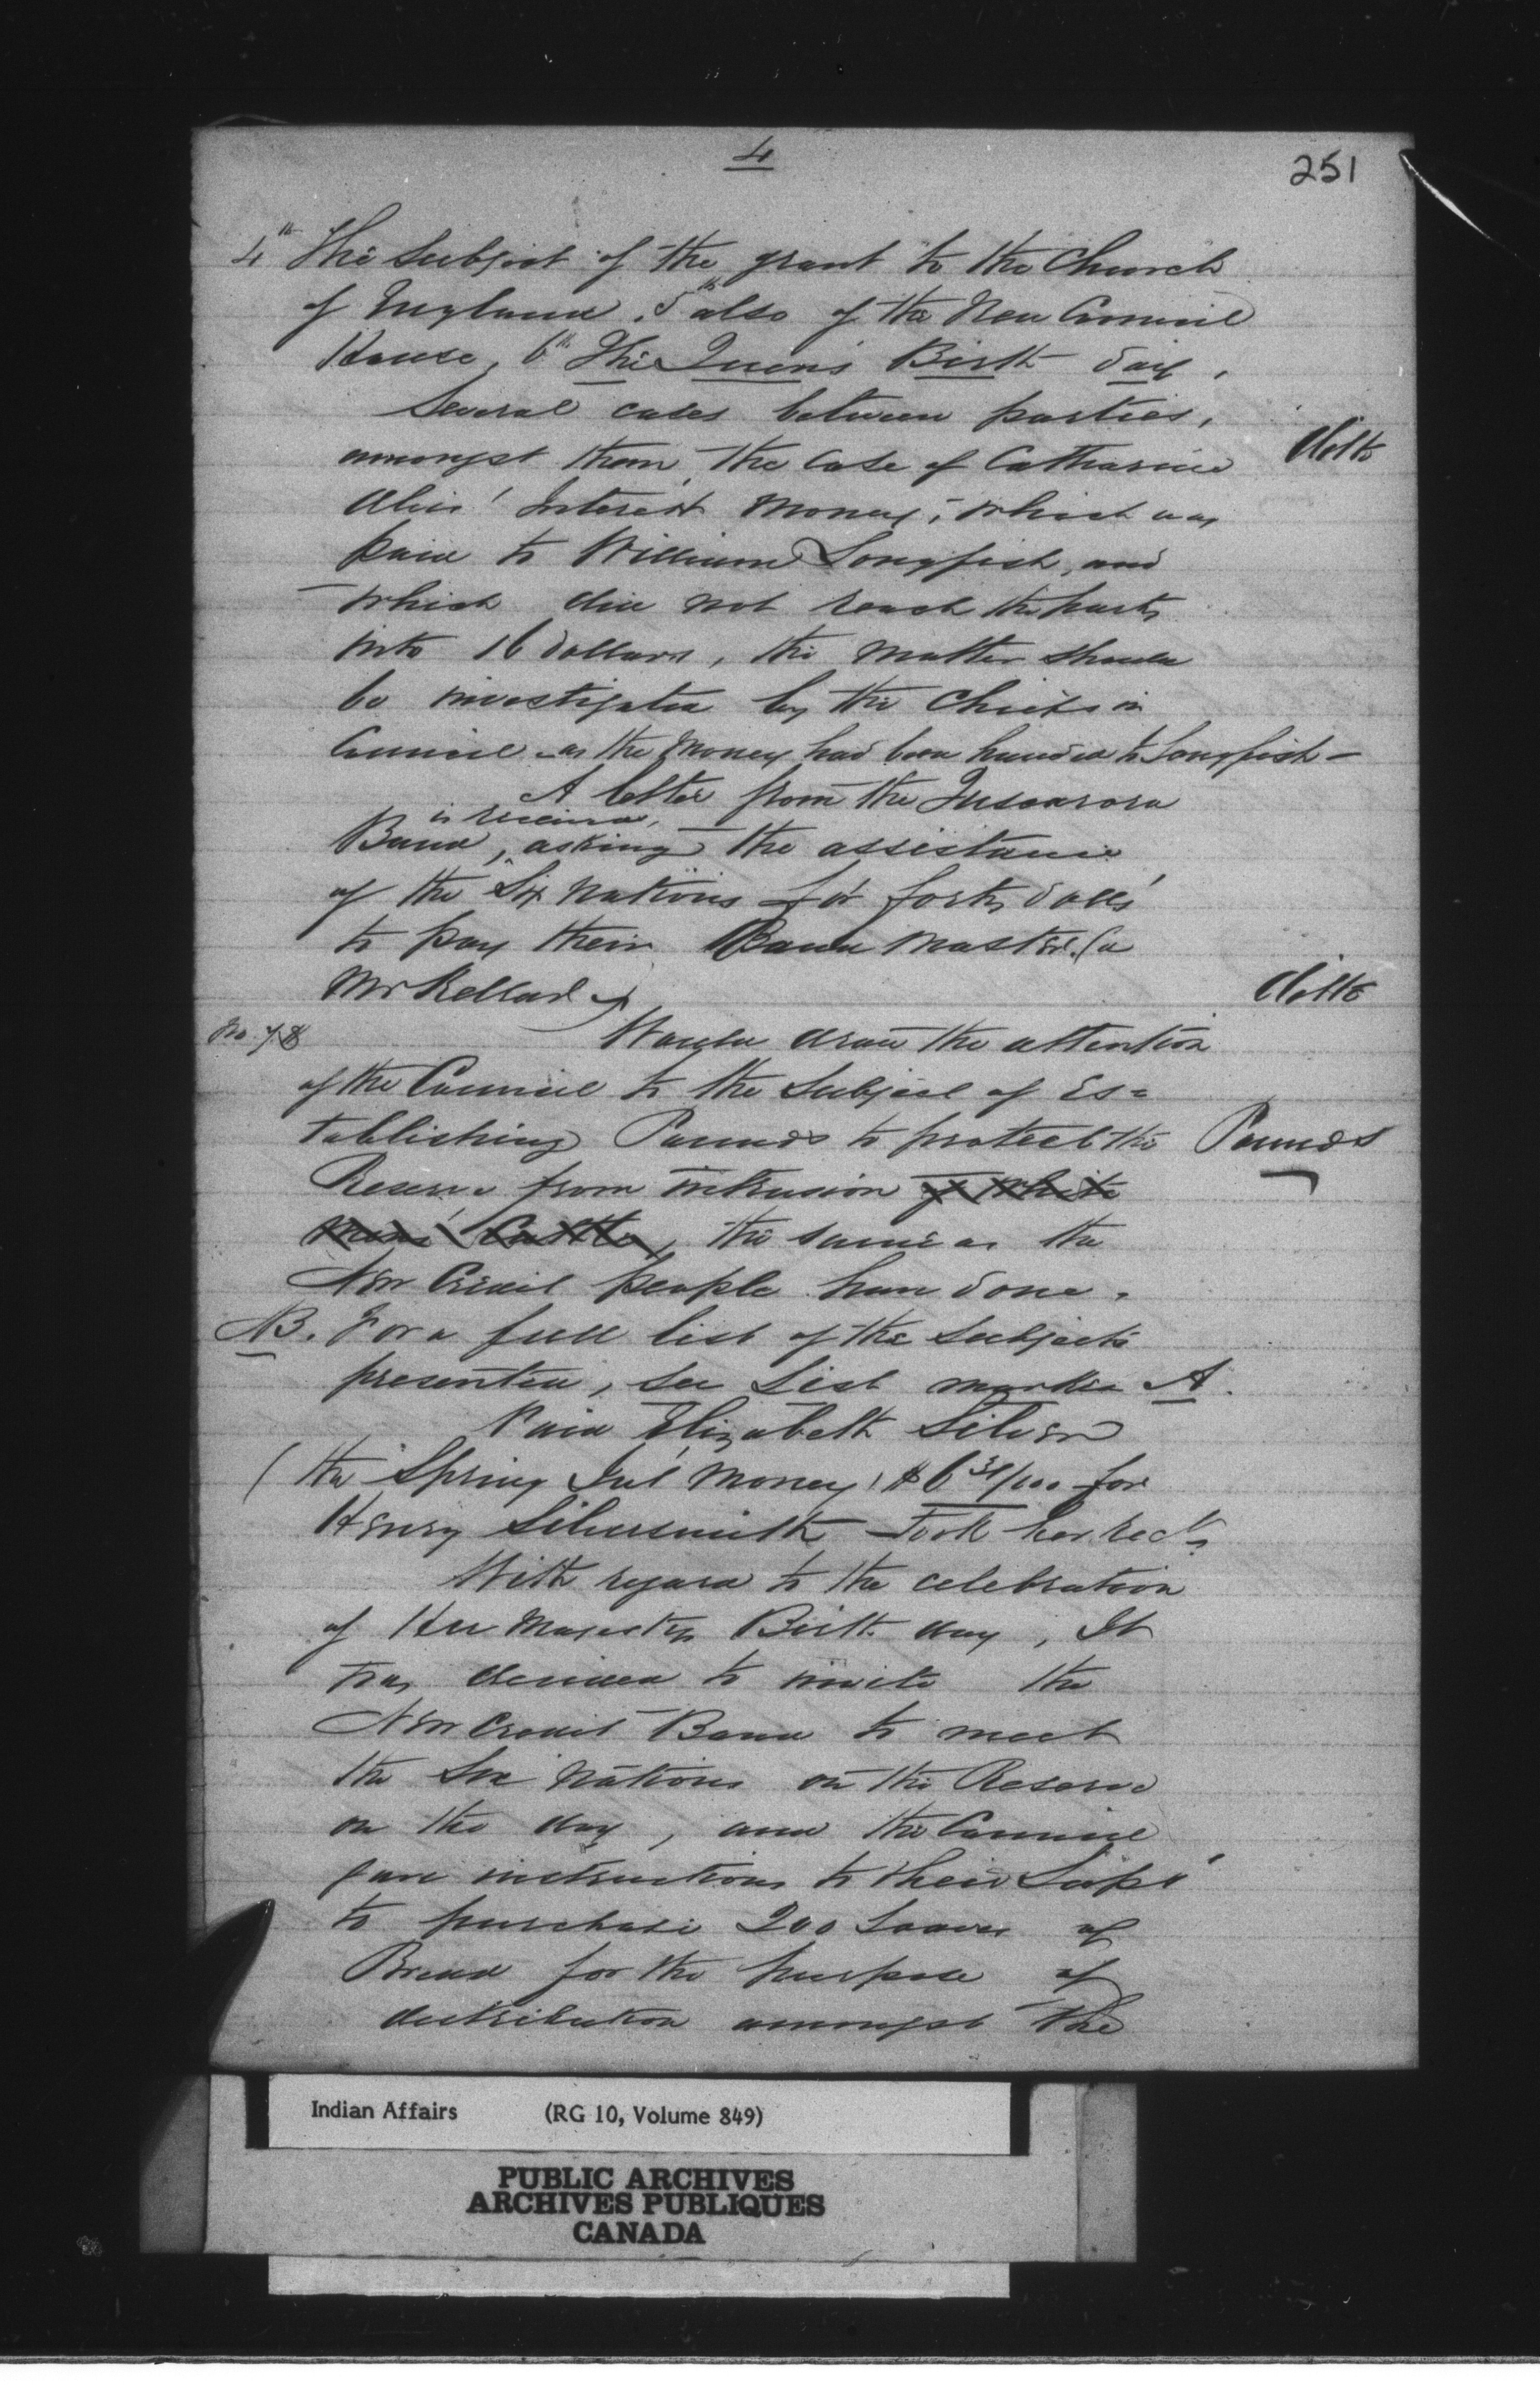 4
251
4th The Subject of the grant to the Church
of England. 5th also of the New Council
House, 6th The Queens Birth day,
Several cases between parties,
amongst them, the case of Catharine ditto
Interest Money, which was
paid to William Longfish, and
which did not reach the party
into 16 dollars, the matter should
be investigated by the Chiefs in
Council as the Money had been handed to Longfish -
A letter from the Tuscarora
is received,
Band, asking the assistance
of the Six Nations for forty dolls
to pay their Band Master (a
Mr Kellar ditto
No. 78 Would draw the attention
of the Council to the Subject of Es=
tablishing Pounds to protect the Pounds
Reserve from intrusion of White
Mens' Cattle, the same as the
New Credit people have done.
NB. For a full list of the Subjects
presented, see List marked A.
Paid Elizabeth Silver
(the Spring Int Money, $6 31/100 for
Henry Silversmith Took her rect
With regard to the celebration
of Her Majestys Birth day, It
was decided to invite the
New Credit Band to meet
the Six Nations on the Reserve
on the day, and the Council
gave instructions to their Supt
to purchase 200 Loaves of
Bread for the purpose of
distribution amongst the
Indian Affairs (RG 10, Volume 849)
PUBLIC ARCHIVES
ARCHIVES PUBLIQUES
CANADA